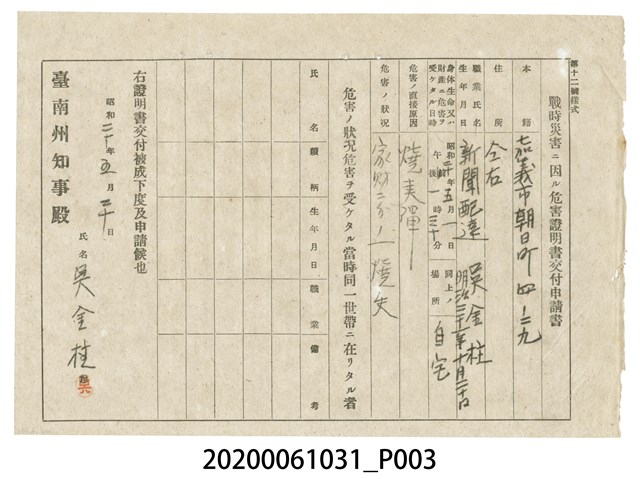 第十二號樣式
戰時災害ニ因ル危害證明書交付申請書
本籍 嘉義市朝日町四ノ二九
住所 仝右
職業氏名 新聞配達 吳金柱
生年月日 明治三十一年十月二十日
身体生命又ハ財產ニ危害ヲ受ケタル日時 昭和二十年五月一日 午後一時三十分 同上ノ場所 自宅
危害ノ直接原因 燒夷彈
危害ノ狀況 家財二分ノ一燒失
危害ノ狀況危害ヲ受ケタル當時同一世帶ニ在リタル者
氏名 續柄 生年月日 職業 備考
右證明書交付被成下度及申請候也
昭和二十年五月二十日
氏名 吳金柱
臺南州知事殿
20200061031_P003